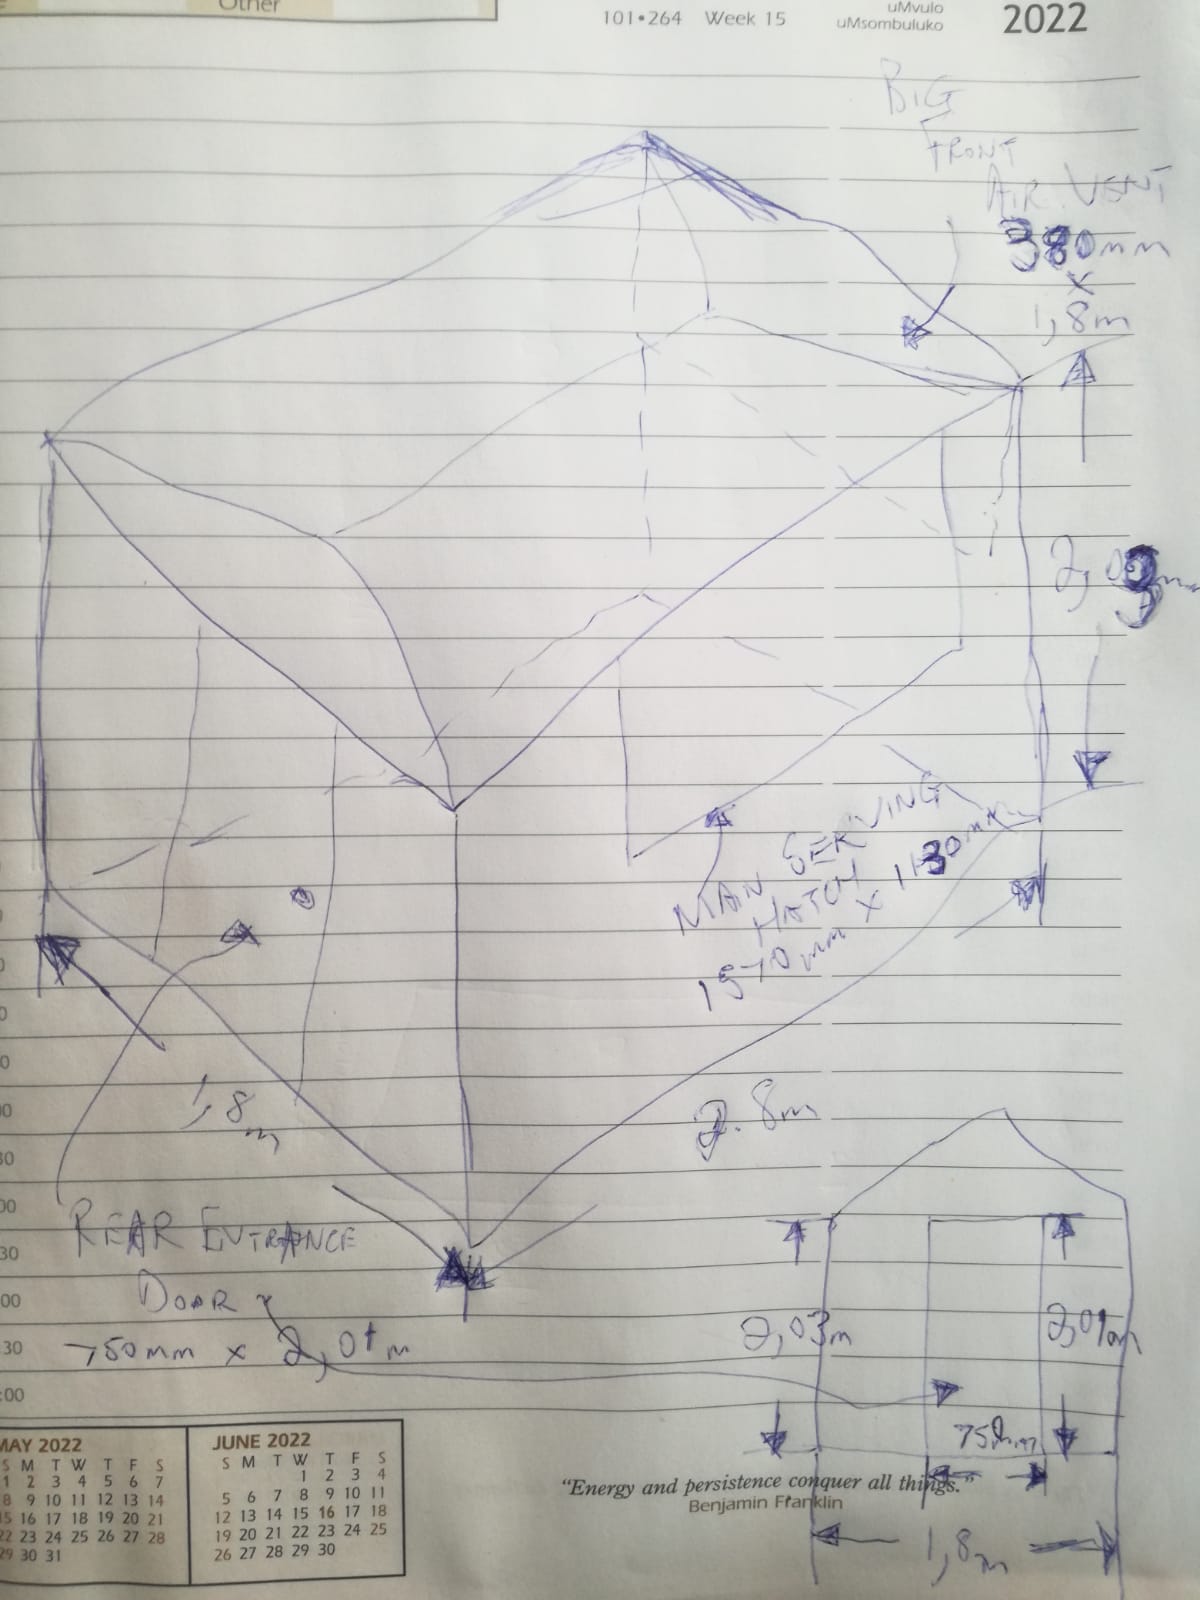 Other
101•264 Week 15
uMvulo
uMsombuluko
2022
BIG
FRONT
AIR VENT
380mm
x
1,8m
MAIN SERVING
HATCH
1570mm x 1130mm
1,8m
2.8m
REAR ENTRANCE
DOOR
750mm x 2,01m
2,03m
2,01m
750mm
1,8m
00
30
00
30
:00
MAY 2022
S M T W T F S
1 2 3 4 5 6 7
8 9 10 11 12 13 14
15 16 17 18 19 20 21
22 23 24 25 26 27 28
29 30 31
JUNE 2022
S M T W T F S
1 2 3 4
5 6 7 8 9 10 11
12 13 14 15 16 17 18
19 20 21 22 23 24 25
26 27 28 29 30
“Energy and persistence conquer all things.”
Benjamin Franklin